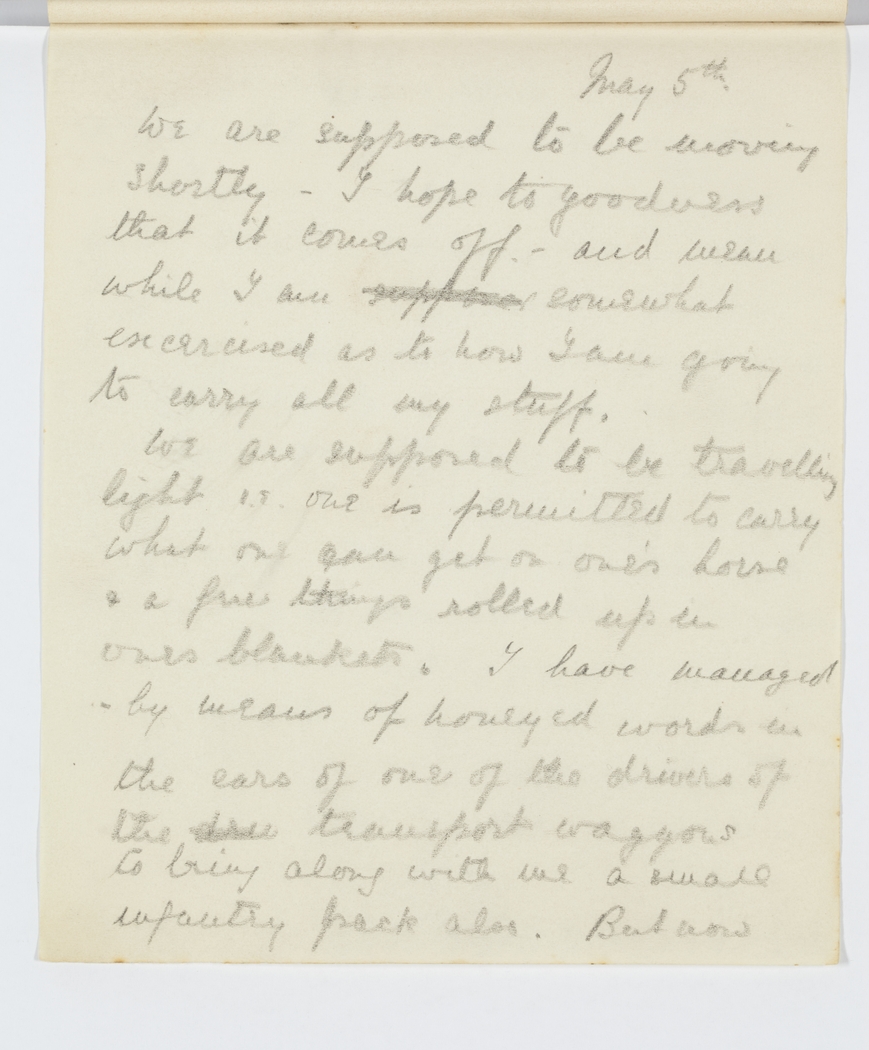 May 5th.
We are supposed to be moving
shortly - I hope to goodness
that it comes off. - and mean
while I am somewhat
excercised as to how I am going
to carry all my stuff.
We are supposed to be travelling
light i.e. one is permitted to carry
what one can get on one's horse
& a few things rolled up in
ones blankets. I have managed
- by means of honeyed words in
the ears of one of the drivers of
the transport waggons
to bring along with me a small
infantry pack also. But now